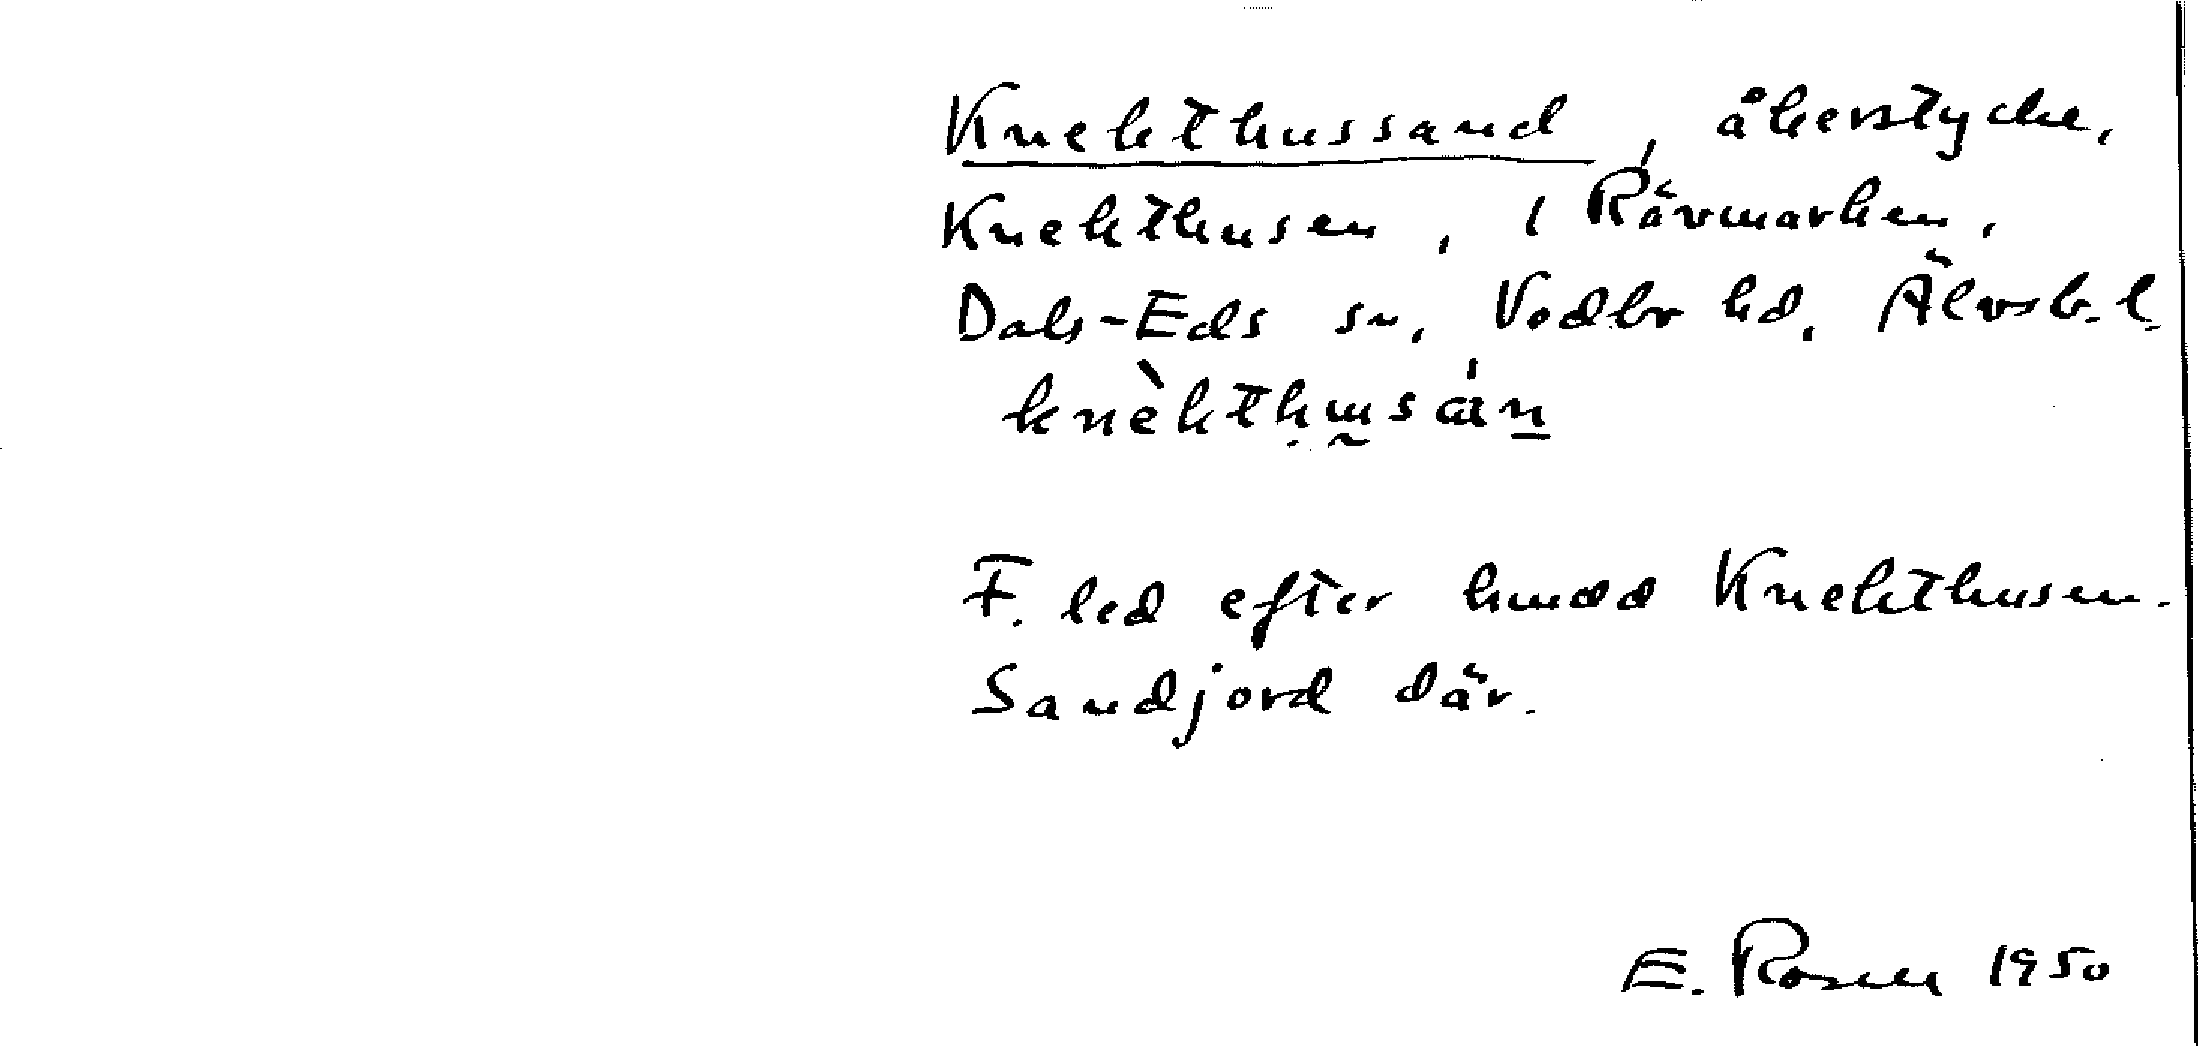 Knekthussand, åkerstycke,
Knekthusen, 1 Rävmarken,
Dals-Eds sn, Vedbo hd, Älvsb. l.
F. led efter hmdd Knekthusen.
Sandjord där.
E. Rosell 1950